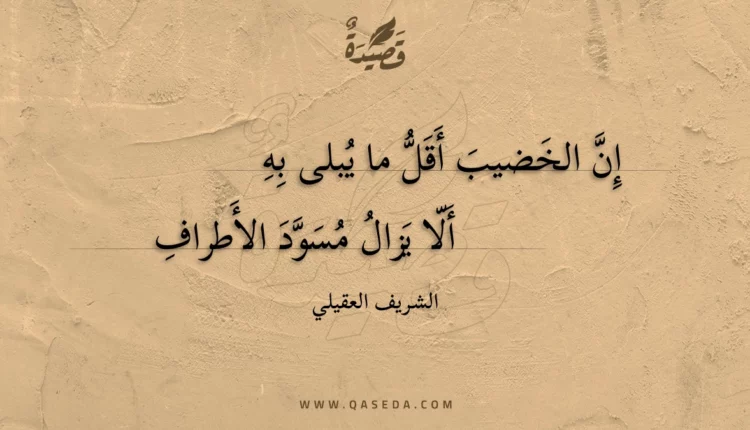 قَصِيدَةٌ
إِنَّ الخَضيبَ أَقَلُّ ما يُبلى بِهِ
أَلّا يَزالُ مُسَوَّدَ الأَطرافِ
الشريف العقيلي
WWW.QASEDA.COM